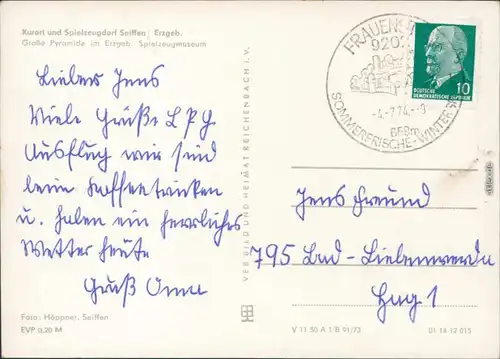 Kurort und Spielzeugdorf Seiffen / Erzgeb.
Große Pyramide im Erzgeb. Spielzeugmuseum
Lieber Jens
Viele Grüße L P G
Ausflug wir sind
beim Kaffeetrinken
u. haben ein herrliches
Wetter heute
Gruß Oma
Foto: Höppner, Seiffen
EVP 0,20 M
VEB BILD UND HEIMAT REICHENBACH I. V.
FRAUENST
920
-4.-7.74.-9
658m
SOMMERFRISCHE-WINTER
10
DEUTSCHE
DEMOKRATISCHE REPUBLIK
Jens Freund
795 Bad-Liebenwerda
Hag 1
V 11 50 A 1/B 91/73
01 14 12 015